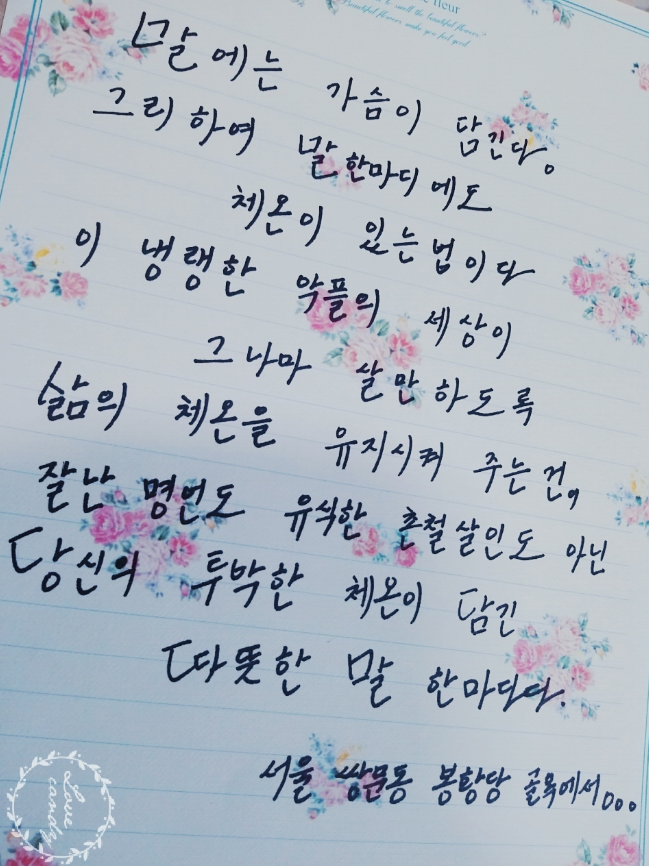 fleur
to smell the beautiful flowers."
Beautiful flowers make you feel good
말에는 가슴이 담긴다.
그리하여 말한마디에도
체온이 있는법이다
이 냉랭한 악플의 세상이
그나마 살만하도록
삶의 체온을 유지시켜 주는건,
잘난 명언도 유식한 촌철살인도 아닌
당신의 투박한 체온이 담긴
따뜻한 말 한마디다.
서울 쌍문동 봉황당 골목에서...
Love
candy